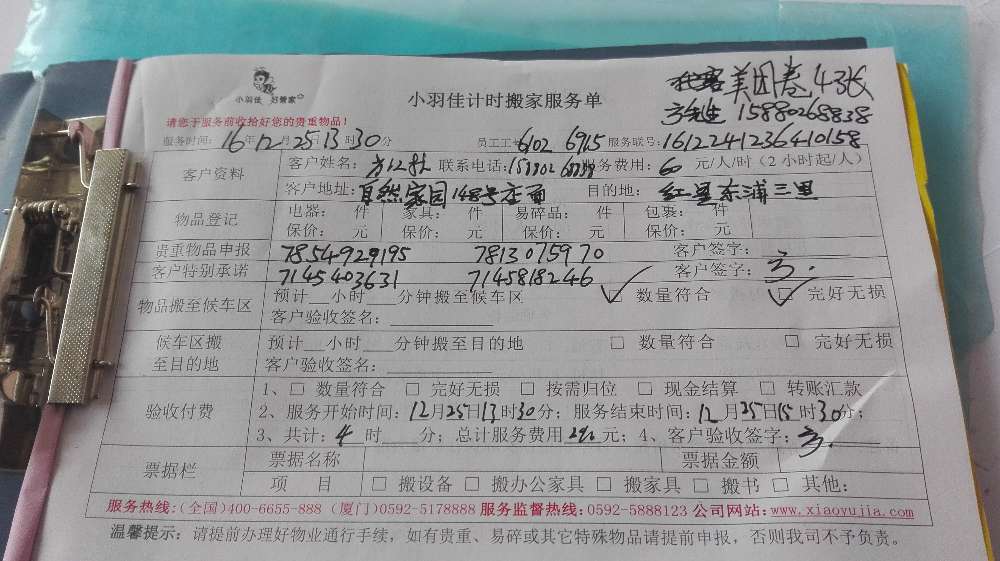 小羽佳 好管家
小羽佳计时搬家服务单
美团卷4张
方先生 15880268838
请您于服务前收拾好您的贵重物品!
服务时间: 16年12月25日13时30分 员工工号: 6102 6915 服务联号: 1612241236410158
客户资料
客户姓名: 联系电话: 服务费用: 60 元/人/时(2小时起/人)
客户地址: 自然家园148号店面 目的地: 红星东浦三里
物品登记
电器: 件 家具: 件 易碎品: 件 包裹: 件
保价: 元 保价: 元 保价: 元 保价: 元
贵重物品申报 7854929195 7813075970 客户签字:
客户特别承诺 7145403631 7145818246 客户签字: 方
物品搬至候车区
预计__小时___分钟搬至候车区 ☑ 数量符合 ☑ 完好无损
客户验收签名:
候车区搬至目的地
预计__小时___分钟搬至目的地 □ 数量符合 □ 完好无损
客户验收签名:
验收付费
1、□ 数量符合 □ 完好无损 □ 按需归位 □ 现金结算 □ 转账汇款
2、服务开始时间: 12月25日13时30分; 服务结束时间: 12月25日15时30分;
3、共计: 4 时___分; 总计服务费用 元; 4、客户验收签字: 方
票据栏
票据名称 票据金额
项 目 □ 搬设备 □ 搬办公家具 □ 搬家具 □ 搬书 □ 其他:
服务热线:(全国)400-6655-888 (厦门)0592-5178888 服务监督热线:0592-5888123 公司网站:www.xiaoyujia.com
温馨提示: 请提前办理好物业通行手续, 如有贵重、易碎或其它特殊物品请提前申报, 否则我司不予负责。